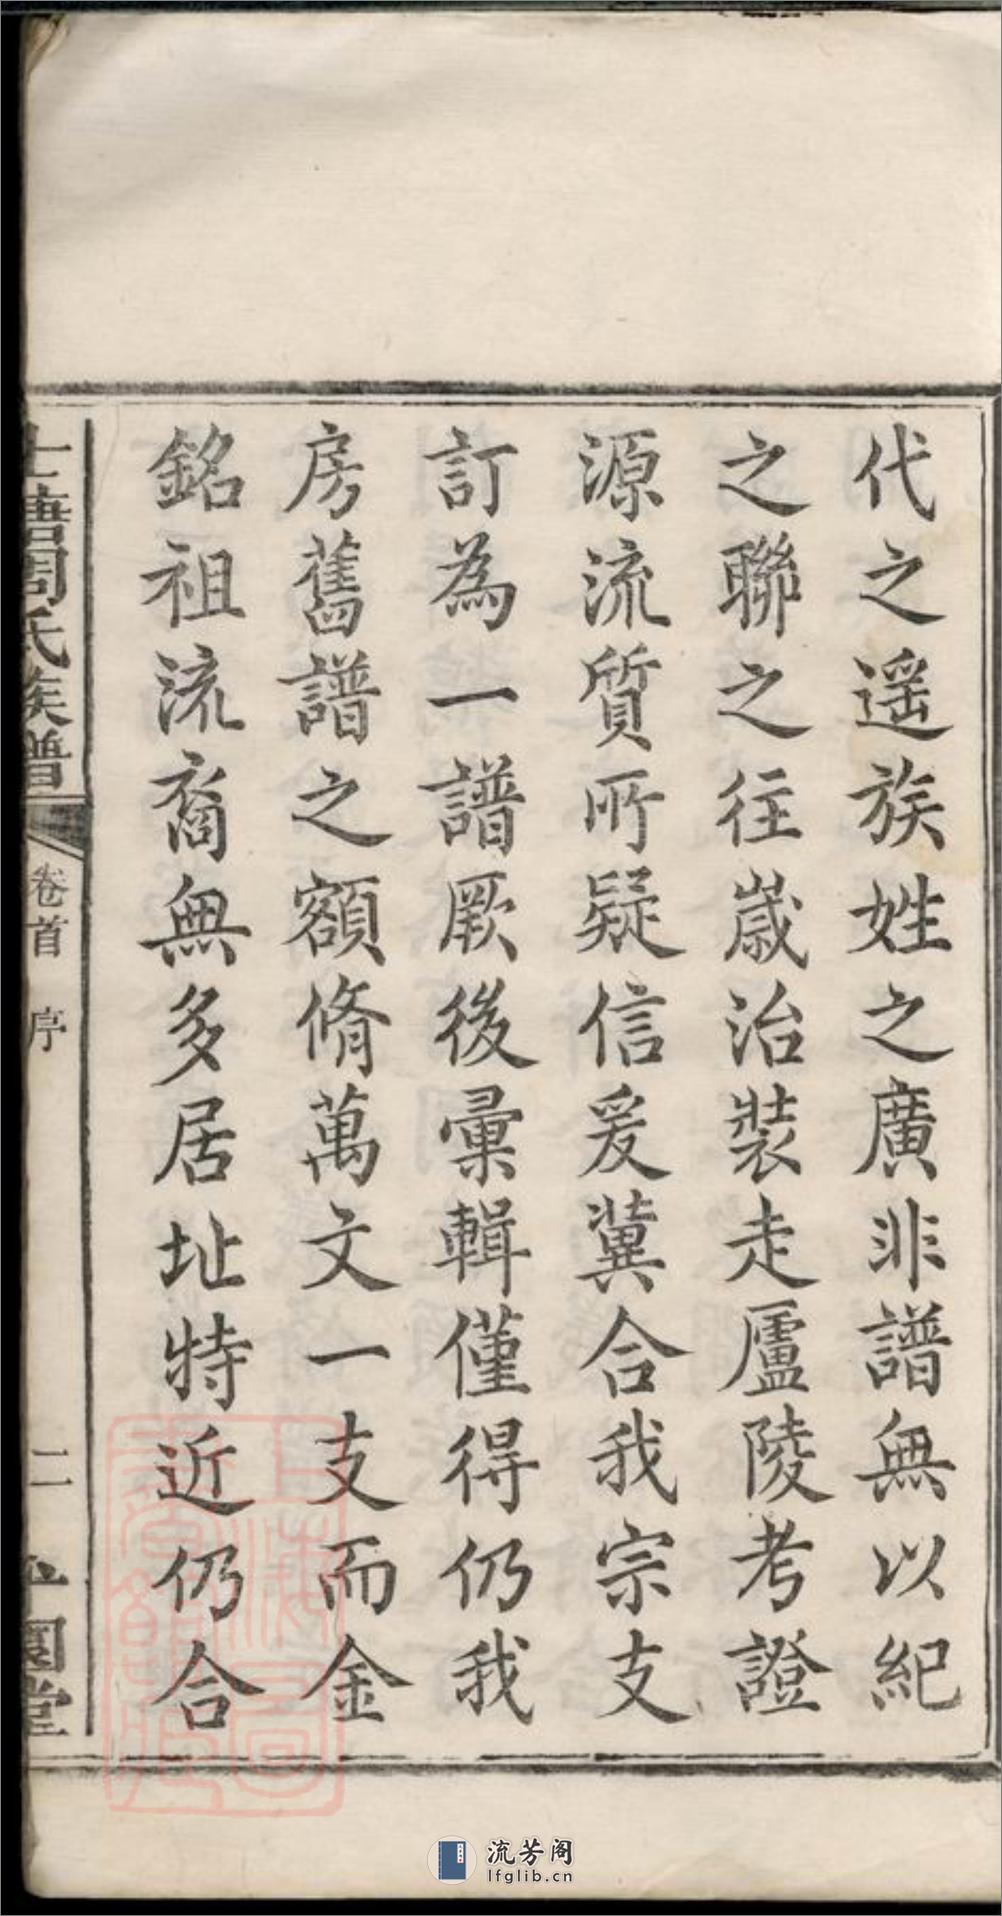 代之遥族姓之廣非譜無以紀
之聯之往歲治裝走廬陵考證
源流質所疑信爰冀合我宗支
訂為一譜厥後彙輯僅得仍我
房舊譜之額脩萬文一支而金
銘祖流裔無多居址特近仍合
塘周氏族譜
卷首 序
二
園堂
上海圖書館藏
流芳阁
lfglib.cn